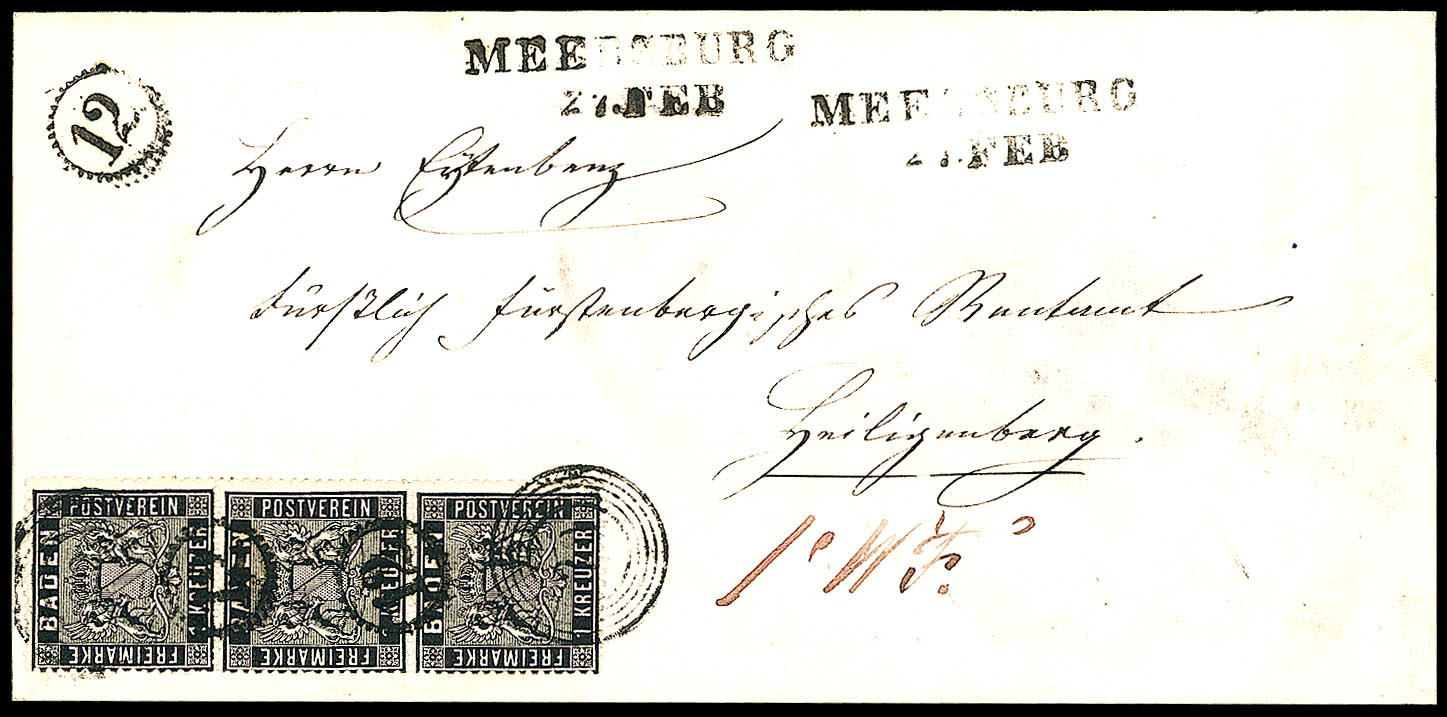 MEERSBURG
27.FEB
MEERSBURG
27.FEB
12
Herrn
Fürstlich Fürstenbergisches Rentamt
Heiligenberg.
POSTVEREIN
BADEN
1 KREUZER
FREIMARKE
POSTVEREIN
BADEN
1 KREUZER
FREIMARKE
POSTVEREIN
BADEN
1 KREUZER
FREIMARKE